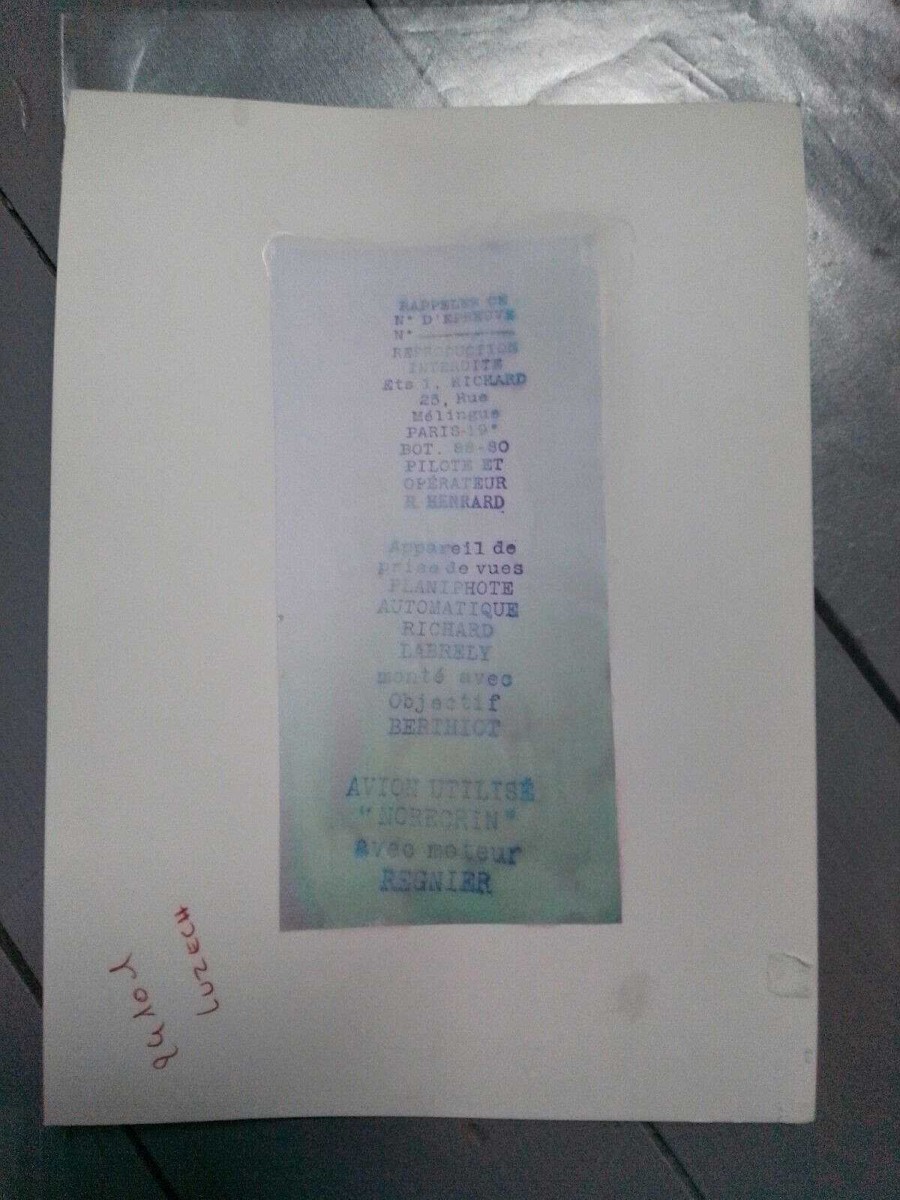 RAPPELER CE
N° D'EPREUVE
N°
REPRODUCTION
INTERDITE
Ets J. RICHARD
25, Rue
Mélingue
PARIS-19°
BOT. 88-80
PILOTE ET
OPÉRATEUR
R HENRARD
Appareil de
prise de vues
PLANIPHOTE
AUTOMATIQUE
RICHARD
LABRELY
monté avec
Objectif
BERTHIOT
AVION UTILISÉ
"NORECRIN"
avec moteur
REGNIER
LUZECH